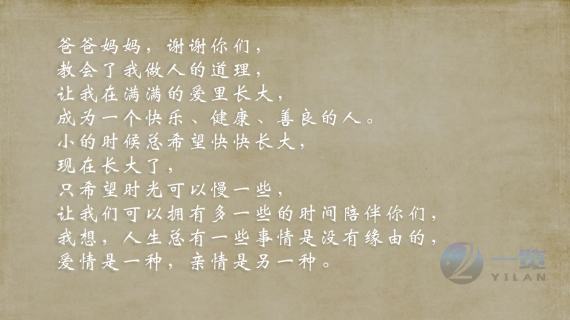 爸爸妈妈，谢谢你们，
教会了我做人的道理，
让我在满满的爱里长大，
成为一个快乐、健康、善良的人。
小的时候总希望快快长大，
现在长大了，
只希望时光可以慢一些，
让我们可以拥有多一些的时间陪伴你们，
我想，人生总有一些事情是没有缘由的，
爱情是一种，亲情是另一种。
一览
YILAN